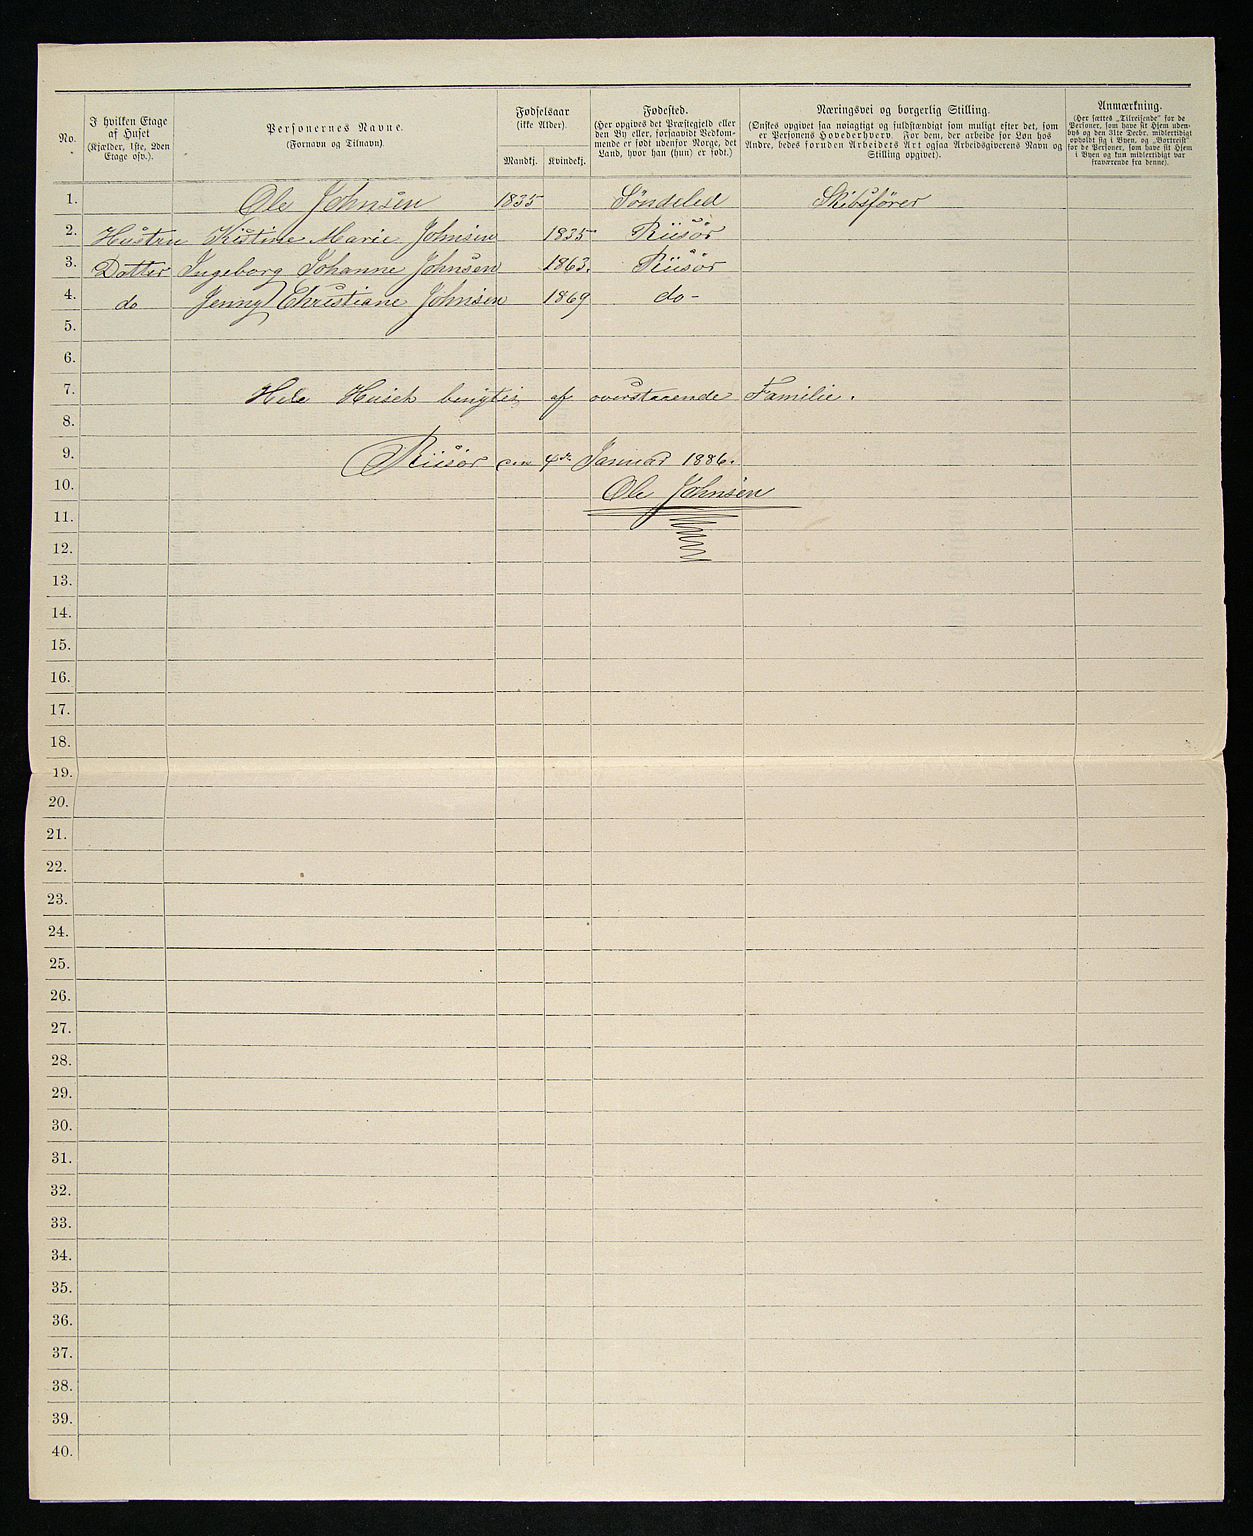 No.
I hvilken Etage
af Huset
(Kjælder, 1ste, 2den
Etage osv.).
Personernes Navne.
(Fornavn og Tilnavn).
Fødselsaar
(ikke Alder).
Mandkj.
Kvindekj.
Fødested.
(Her opgives det Præstegjeld eller
den By eller, forsaavidt Vedkom-
mende er født udenfor Norge, det
Land, hvor han (hun) er født.)
Næringsvei og borgerlig Stilling.
(Ønskes opgivet saa nøiagtigt og fuldstændigt som muligt efter det, som
er Personens Hovederhverv. For dem, der arbeide for Løn hos
Andre, bedes foruden Arbeidets Art ogsaa Arbeidsgiverens Navn og
Stilling opgivet).
Anmærkning.
(Her sættes „Tilreisende“ for de
Personer, som have sit Hjem uden-
bys og den 31te Decbr. midlertidigt
opholdt sig i Byen, og „Bortreist“
for de Personer, som have sit Hjem
i Byen og kun midlertidigt var
fraværende fra denne).
1. Ole Johnsen 1835 Søndeled Skibsfører
2. Hustru Kistine Marie Johnsen 1835 Riisør
3. Datter Ingeborg Johanne Johnsen 1863. Riisør
4. do Jenny Christiane Johnsen 1869 do-
5.
6.
7. Hele Huset af overstaaende Familie.
8.
9. Riisør den 4de Januar 1886.
10. Ole Johnsen
11.
12.
13.
14.
15.
16.
17.
18.
19.
20.
21.
22.
23.
24.
25.
26.
27.
28.
29.
30.
31.
32.
33.
34.
35.
36.
37.
38.
39.
40.